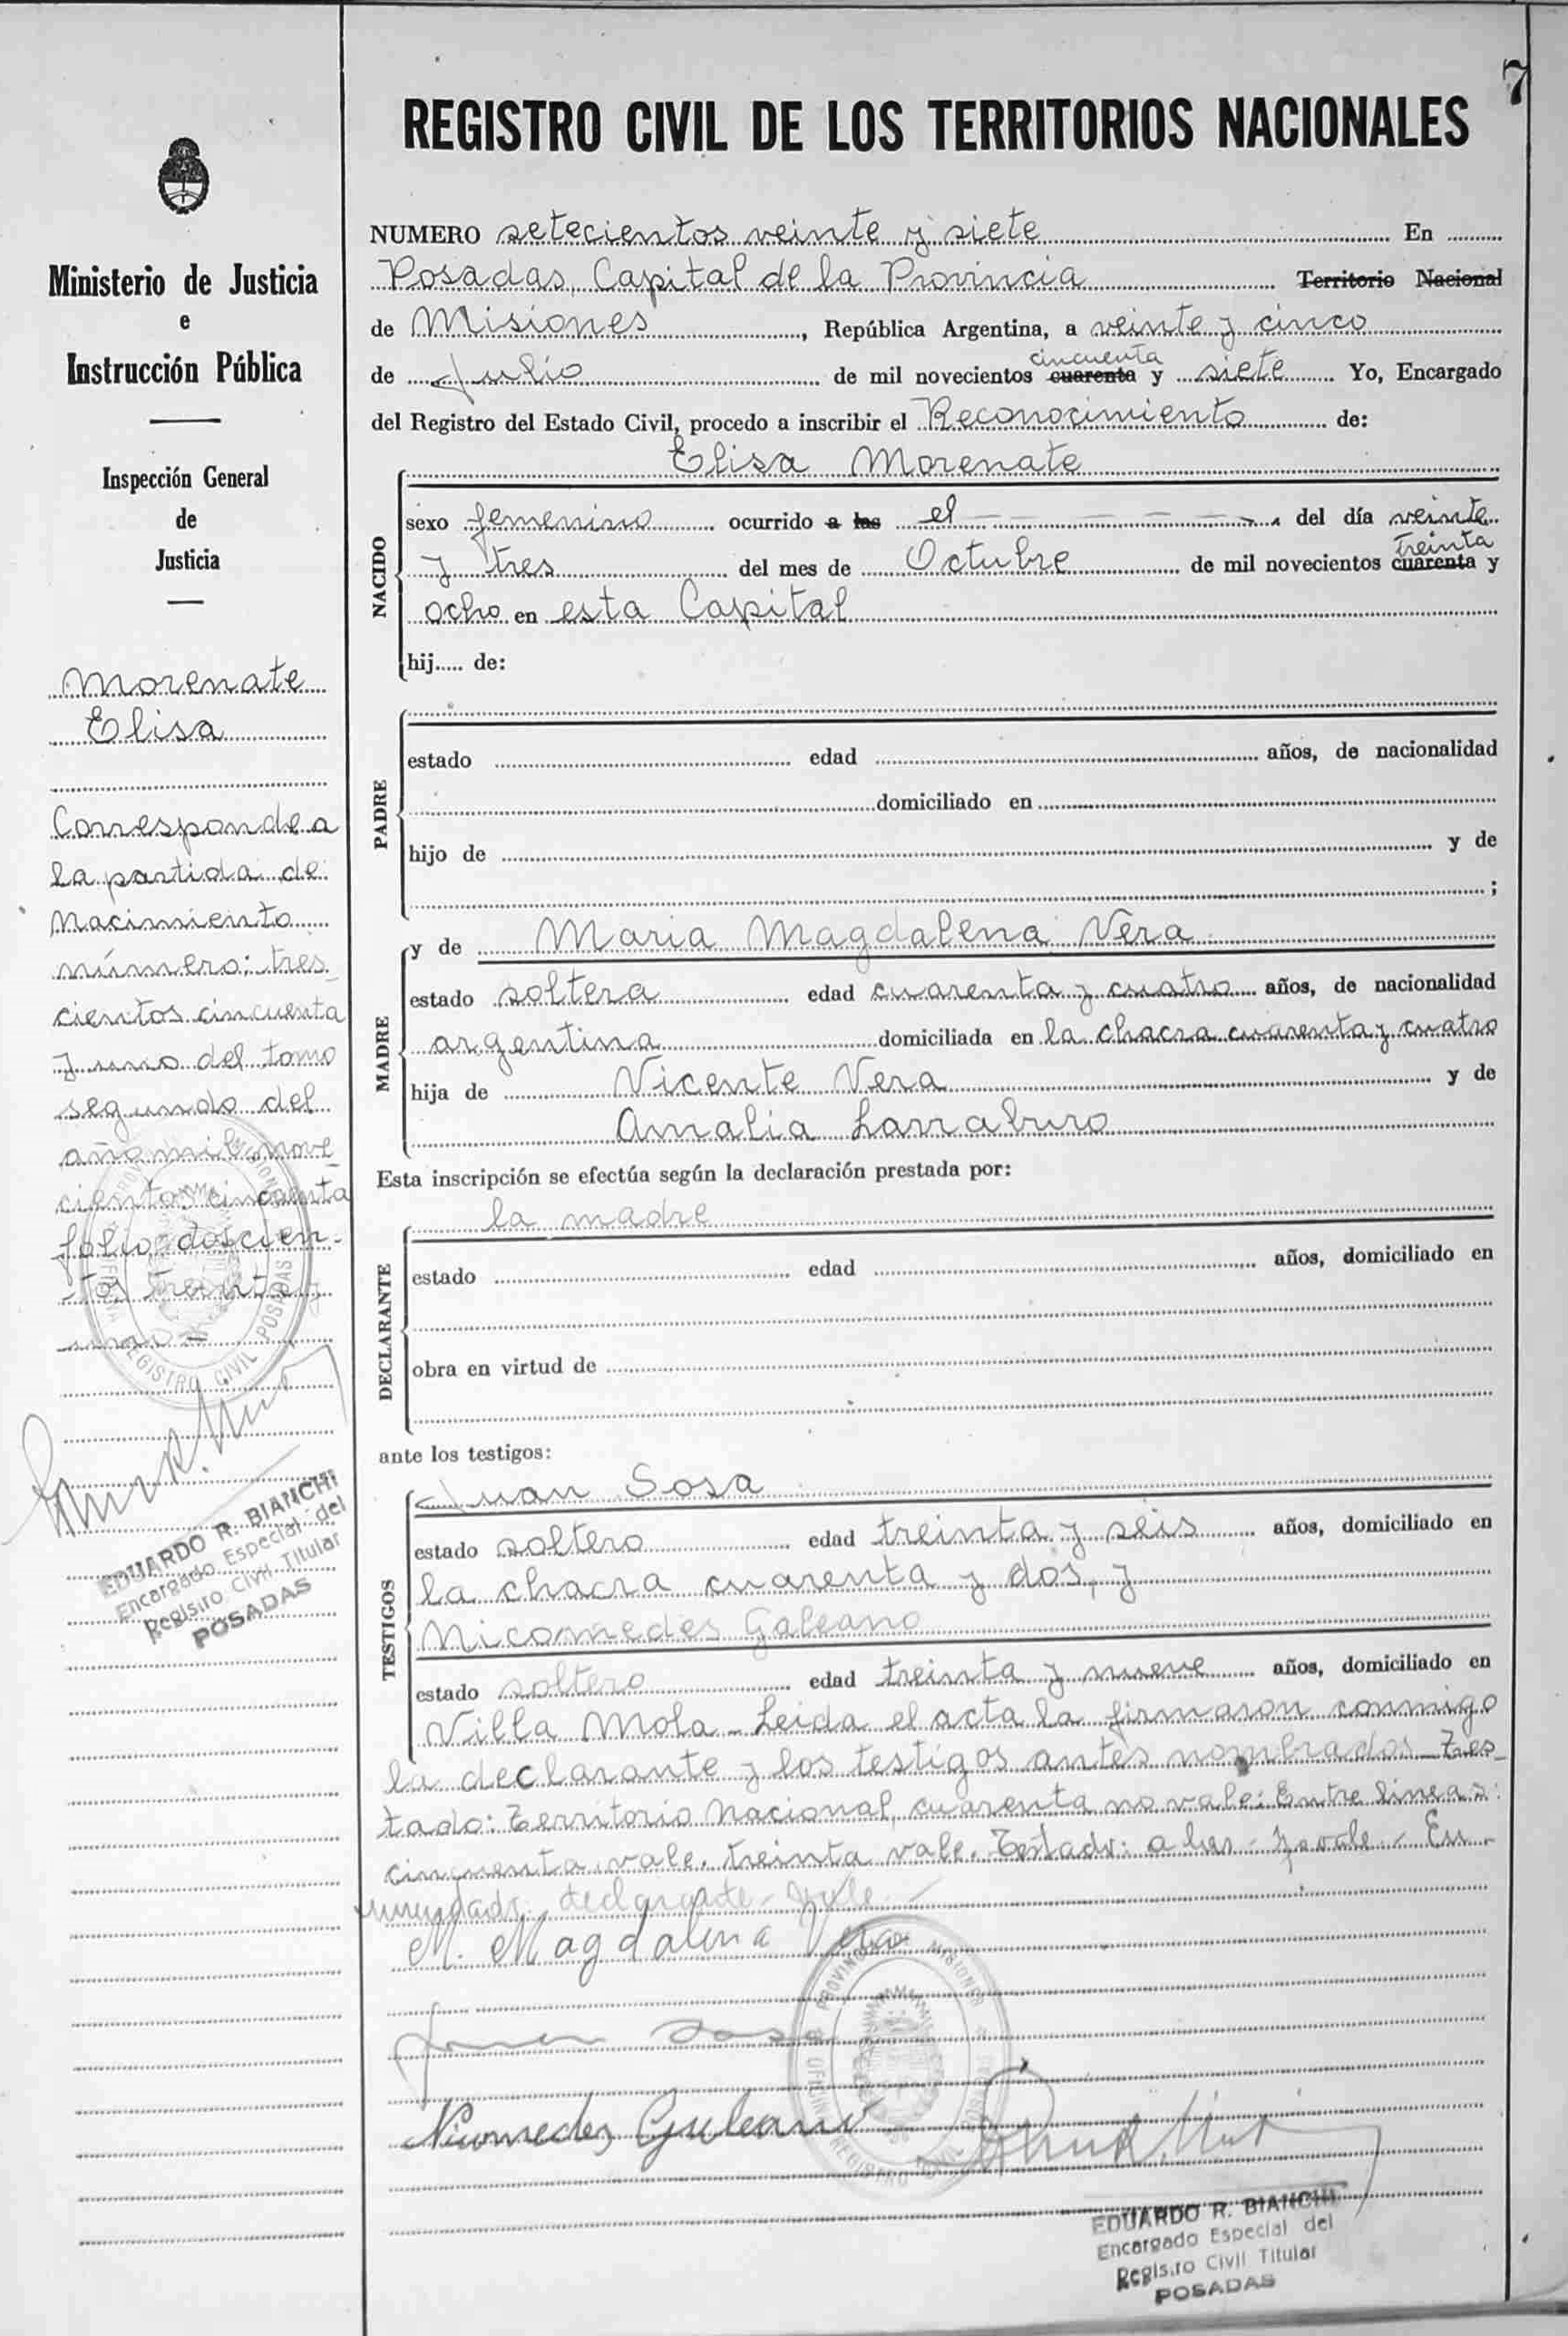 7
REGISTRO CIVIL DE LOS TERRITORIOS NACIONALES
Ministerio de Justicia
e
Instrucción Pública
Inspección General
de
Justicia
Morenate
Elisa
Corresponde a
la partida de
Nacimiento
número: tres
cientos cincuenta
y uno del tomo
segundo del
año mil nove
cientos cincuenta
folio doscien-
tos treinta y
uno -
EDUARDO R. BIANCHI
Encargado Especial del
Registro Civil Titular
POSADAS
NUMERO setecientos veinte y siete En
Posadas, Capital de la Provincia Territorio Nacional
de Misiones, República Argentina, a veinte y cinco
de Julio de mil novecientos cuarenta cincuenta y siete Yo, Encargado
del Registro del Estado Civil, procedo a inscribir el Reconocimiento de:
Elisa Morenate
NACIDO
sexo femenino ocurrido a las el del día veinte
y tres del mes de Octubre de mil novecientos cuarenta treinta y
ocho en esta Capital
hij..... de:
PADRE
estado edad años, de nacionalidad
domiciliado en
hijo de y de
;
MADRE
y de Maria Magdalena Vera
estado soltera edad cuarenta y cuatro años, de nacionalidad
argentina domiciliada en la chacra cuarenta y cuatro
hija de Vicente Vera y de
Amalia Larraburo
Esta inscripción se efectúa según la declaración prestada por:
DECLARANTE
la madre
estado edad años, domiciliado en
obra en virtud de
ante los testigos:
TESTIGOS
Juan Sosa
estado soltero edad treinta y seis años, domiciliado en
la chacra cuarenta y dos, y
Nicomedes Galeano
estado soltero edad treinta y nueve años, domiciliado en
Villa Mola - Leida el acta la firmaron conmigo
la declarante y los testigos antes nombrados - Tes-
tado: Territorio Nacional, cuarenta no vale: Entre lineas:
cincuenta vale. treinta vale. Testado: a las - vale - En-
mendado: declarante - Vale -
M. Magdalena Vera
Juan Sosa
Nicomedes Galeano
PROVINCIA MISIONES
OFICINA REGISTRO CIVIL POSADAS
EDUARDO R. BIANCHI
Encargado Especial del
Registro Civil Titular
POSADAS